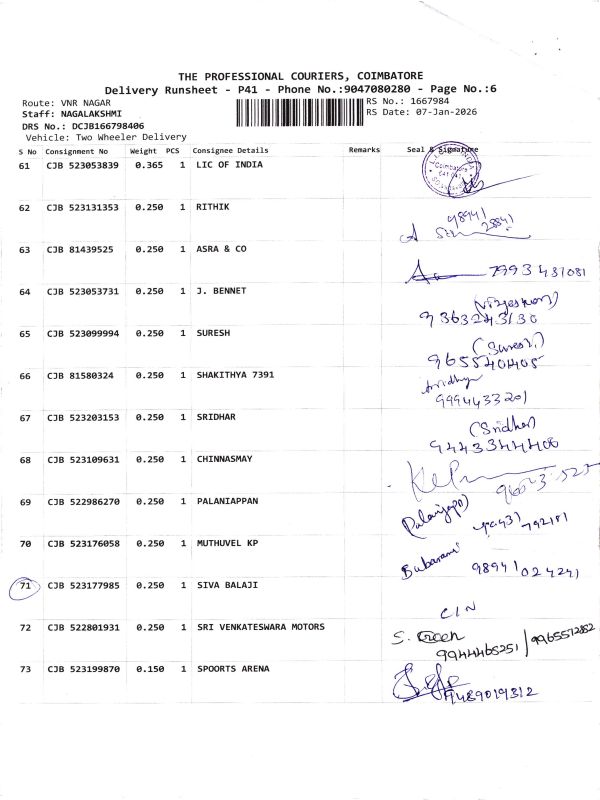 THE PROFESSIONAL COURIERS, COIMBATORE
Delivery Runsheet - P41 - Phone No.:9047080280 - Page No.:6
Route: VNR NAGAR
RS No.: 1667984
Staff: NAGALAKSHMI
RS Date: 07-Jan-2026
DRS No.: DCJB166798406
Vehicle: Two Wheeler Delivery
S No Consignment No Weight PCS Consignee Details Remarks Seal & Signature
61 CJB 523053839 0.365 1 LIC OF INDIA
Coimbatore
62 CJB 523131353 0.250 1 RITHIK
98941
28841
63 CJB 81439525 0.250 1 ASRA & CO
7993431081
64 CJB 523053731 0.250 1 J. BENNET
9363243130
65 CJB 523099994 0.250 1 SURESH
(Suresh)
9655401405
66 CJB 81580324 0.250 1 SHAKITHYA 7391
9994433201
67 CJB 523203153 0.250 1 SRIDHAR
(Sridhar)
9443344400
68 CJB 523109631 0.250 1 CHINNASMAY
69 CJB 522986270 0.250 1 PALANIAPPAN
70 CJB 523176058 0.250 1 MUTHUVEL KP
98941 024241
71 CJB 523177985 0.250 1 SIVA BALAJI
C/N
72 CJB 522801931 0.250 1 SRI VENKATESWARA MOTORS
9944465251 / 9965572852
73 CJB 523199870 0.150 1 SPOORTS ARENA
9489019312